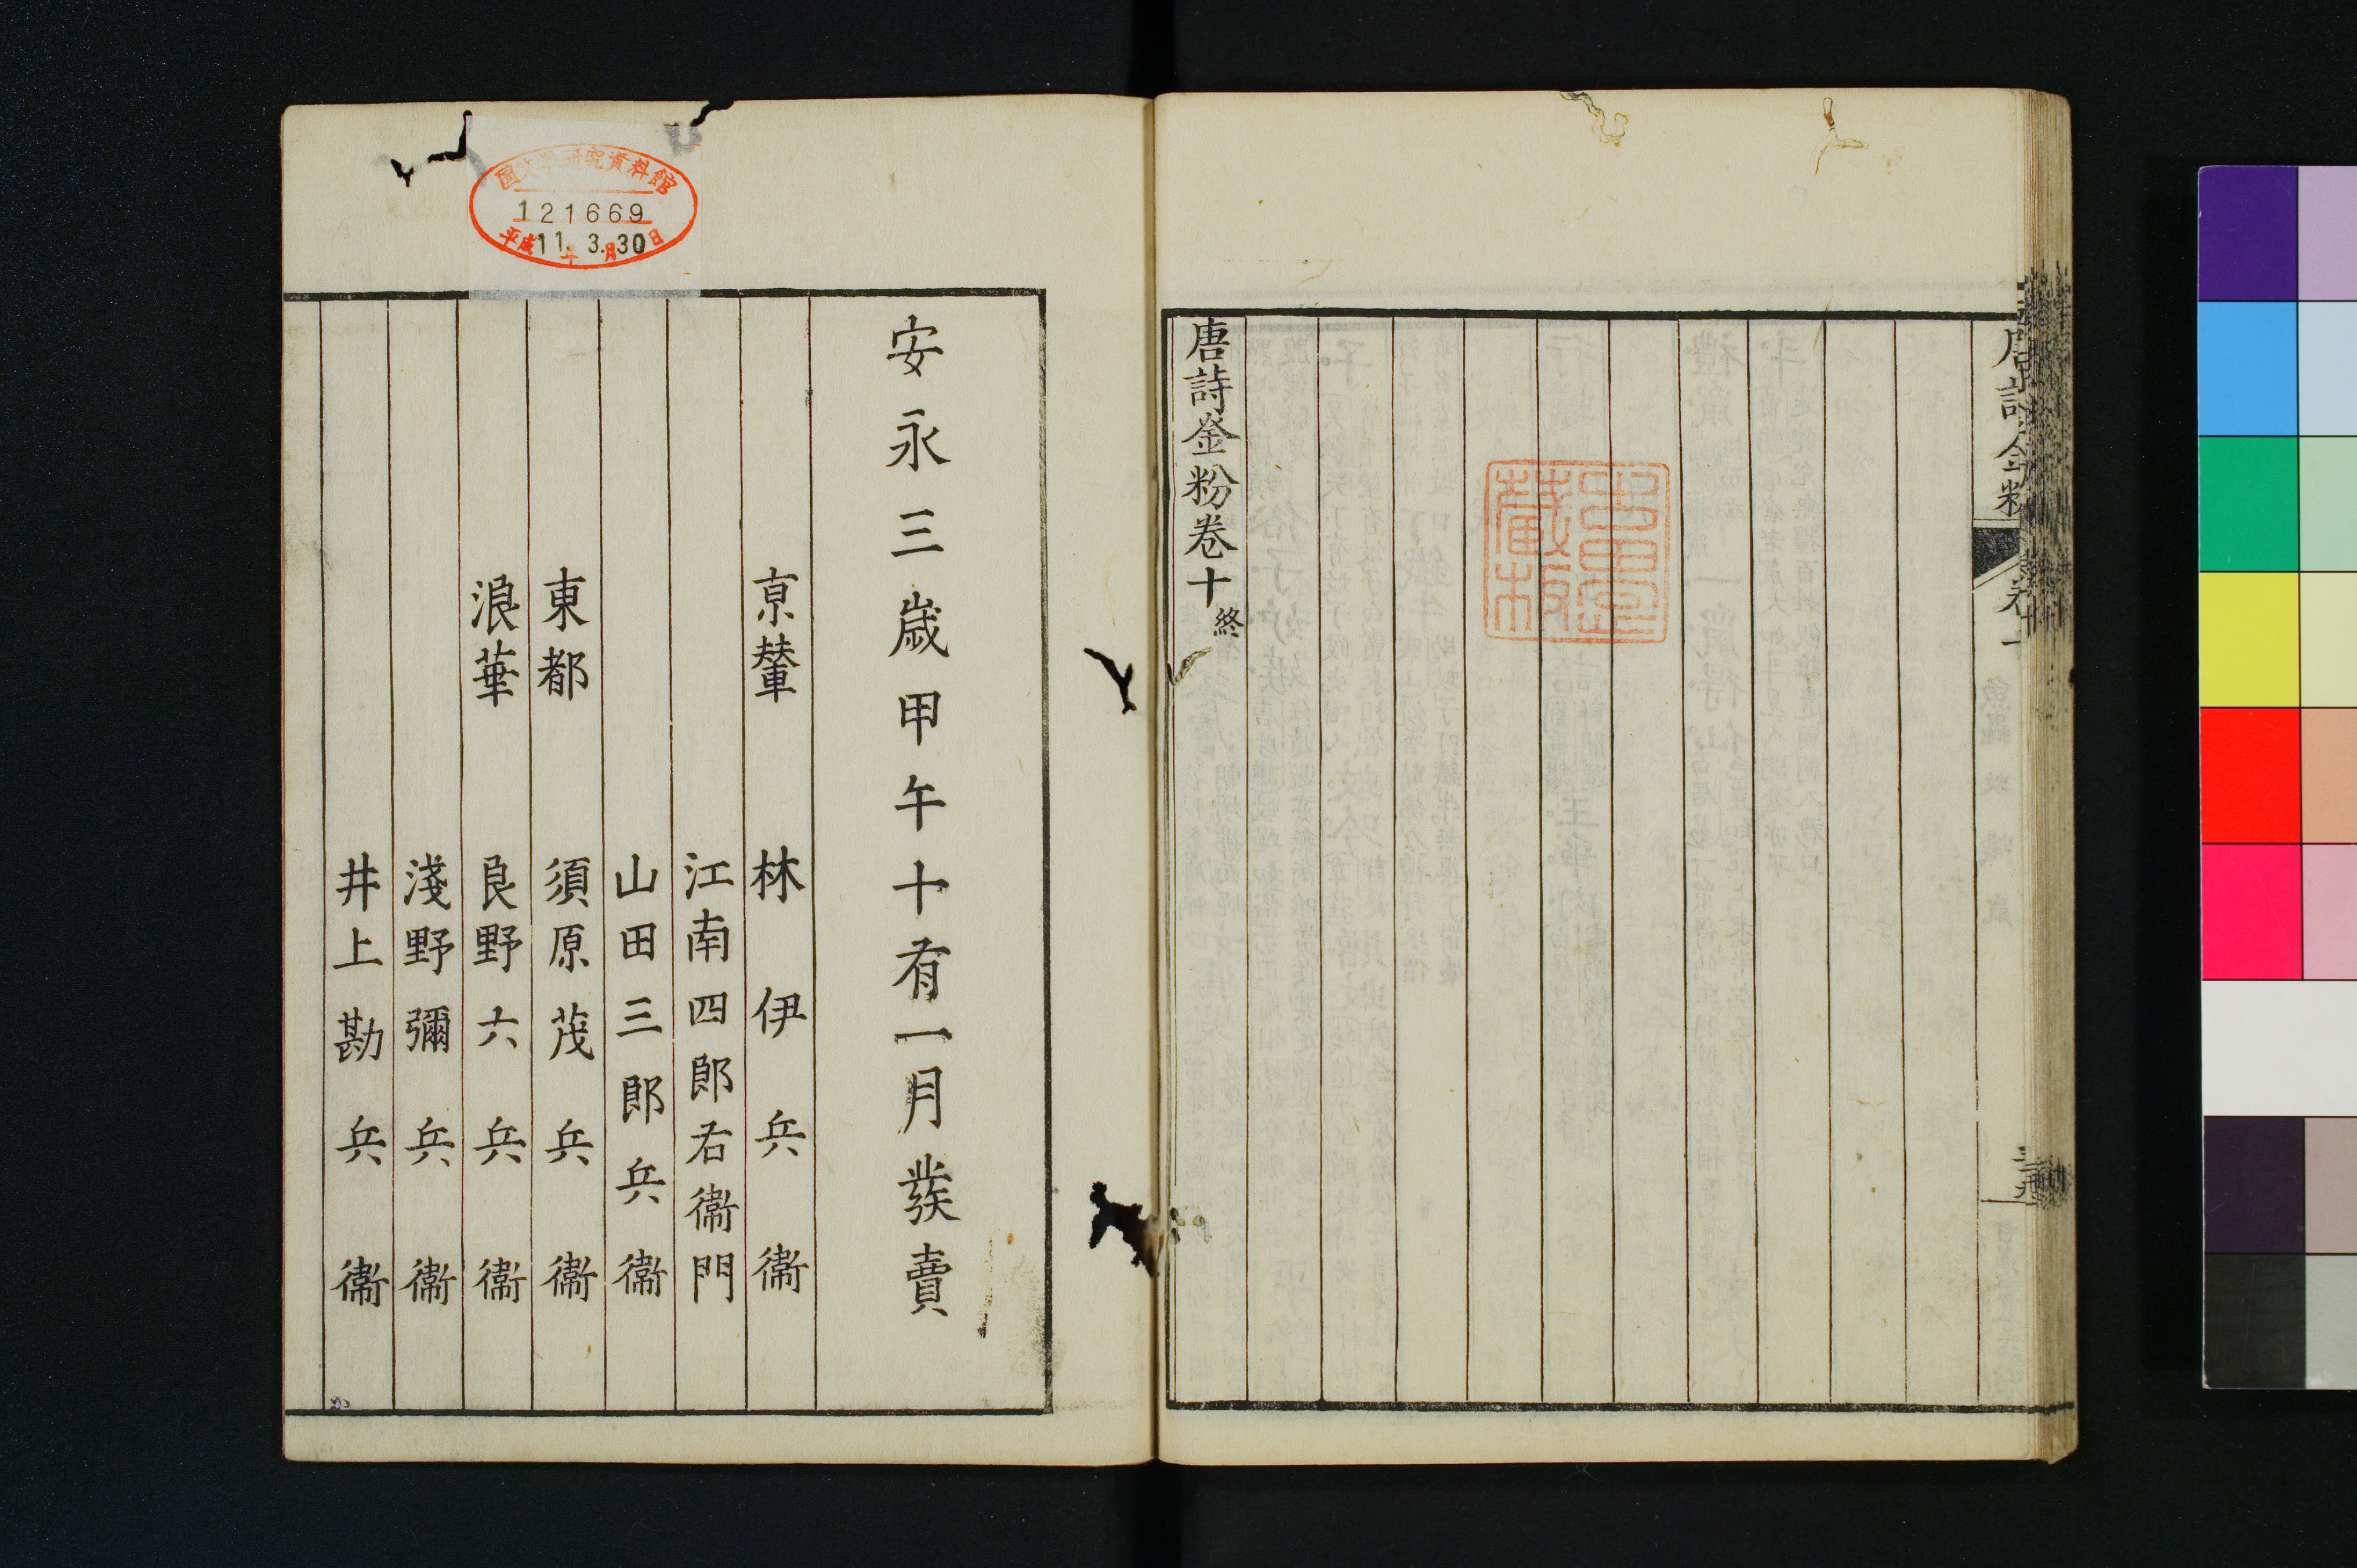 唐詩金粉
卷十
唐詩釡粉卷十終
藏板
国文学研究資料館
121669
平成11年3月30日
安永三歲甲午十有一月發賣
京輦 林伊兵衞
江南四郎右衞門
山田三郎兵衞
東都 須原茂兵衞
浪華 良野六兵衞
淺野彌兵衞
井上勘兵衞